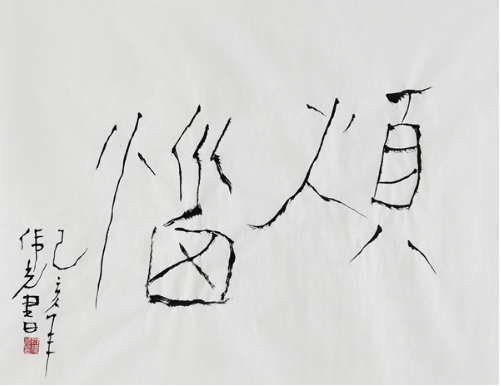 煩惱
己亥年
伟光書